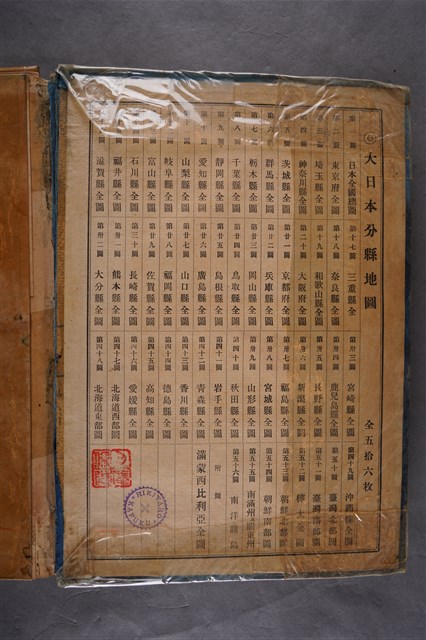 大日本分縣地圖 全五拾六枚
日本全國總圖 第十七圖 三重縣全 第卅三圖 宮崎縣全圖 第四十九圖 沖繩縣全圖
第二圖 東京府全圖 第十八圖 奈良縣全圖 鹿兒島縣全圖 第五十圖 臺灣北部圖
埼玉縣全圖 第十九圖 和歌山縣全圖 第卅五圖 長野縣全圖 第五十一圖 臺灣南部圖
神奈川縣全圖 第二十圖 大阪府全圖 第卅六圖 新潟縣全圖 第五十二圖 樺太全圖
茨城縣全圖 第廿一圖 京都府全圖 第卅七圖 福島縣全圖 第五十三圖 朝鮮北部圖
群馬縣全圖 第廿二圖 兵庫縣全圖 第卅八圖 宮城縣全圖 第五十四圖 朝鮮南部圖
栃木縣全圖 第廿三圖 岡山縣全圖 第卅九圖 山形縣全圖 第五十五圖 南滿州及關東州
千葉縣全圖 第廿四圖 鳥取縣全圖 第四十圖 秋田縣全圖 第五十六圖 南洋群島
靜岡縣全圖 第廿五圖 島根縣全圖 第四十一圖 岩手縣全圖 附圖
愛知縣全圖 第廿六圖 廣島縣全圖 第四十二圖 青森縣全圖 滿蒙西比利亞全圖
山梨縣全圖 第廿七圖 山口縣全圖 第四十三圖 香川縣全圖
岐阜縣全圖 第廿八圖 福岡縣全圖 第四十四圖 德島縣全圖
富山縣全圖 第廿九圖 佐賀縣全圖 第四十五圖 高知縣全圖
石川縣全圖 第三十圖 長崎縣全圖 第四十六圖 愛媛縣全圖
福井縣全圖 第卅一圖 熊本縣全圖 第四十七圖 北海道西部圖
滋賀縣全圖 第卅二圖 大分縣全圖 第四十八圖 北海道東部圖